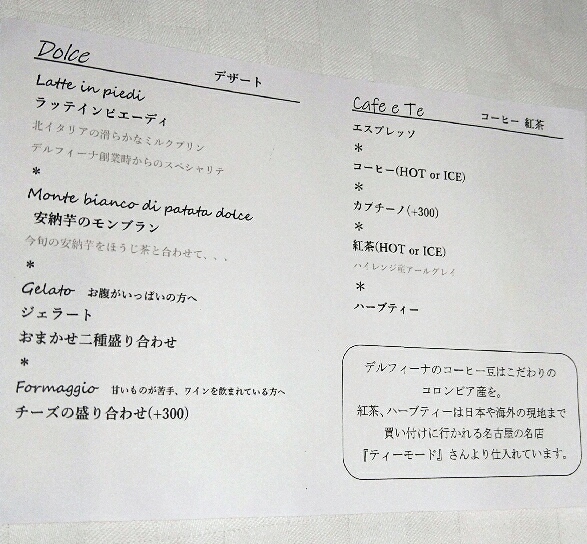 Dolce
デザート
Latte in piedi
ラッテインピエーディ
北イタリアの滑らかなミルクプリン
デルフィーナ創業時からのスペシャリテ
*
Monte bianco di patata dolce
安納芋のモンブラン
今旬の安納芋をほうじ茶と合わせて、、、
*
Gelato お腹がいっぱいの方へ
ジェラート
おまかせ二種盛り合わせ
*
Formaggio 甘いものが苦手、ワインを飲まれている方へ
チーズの盛り合わせ(+300)
Cafe e Te
コーヒー 紅茶
エスプレッソ
*
コーヒー(HOT or ICE)
*
カプチーノ(+300)
*
紅茶(HOT or ICE)
ハイレンジ産アールグレイ
*
ハーブティー
デルフィーナのコーヒー豆はこだわりの
コロンビア産を。
紅茶、ハーブティーは日本や海外の現地まで
買い付けに行かれる名古屋の名店
『ティーモード』さんより仕入れています。